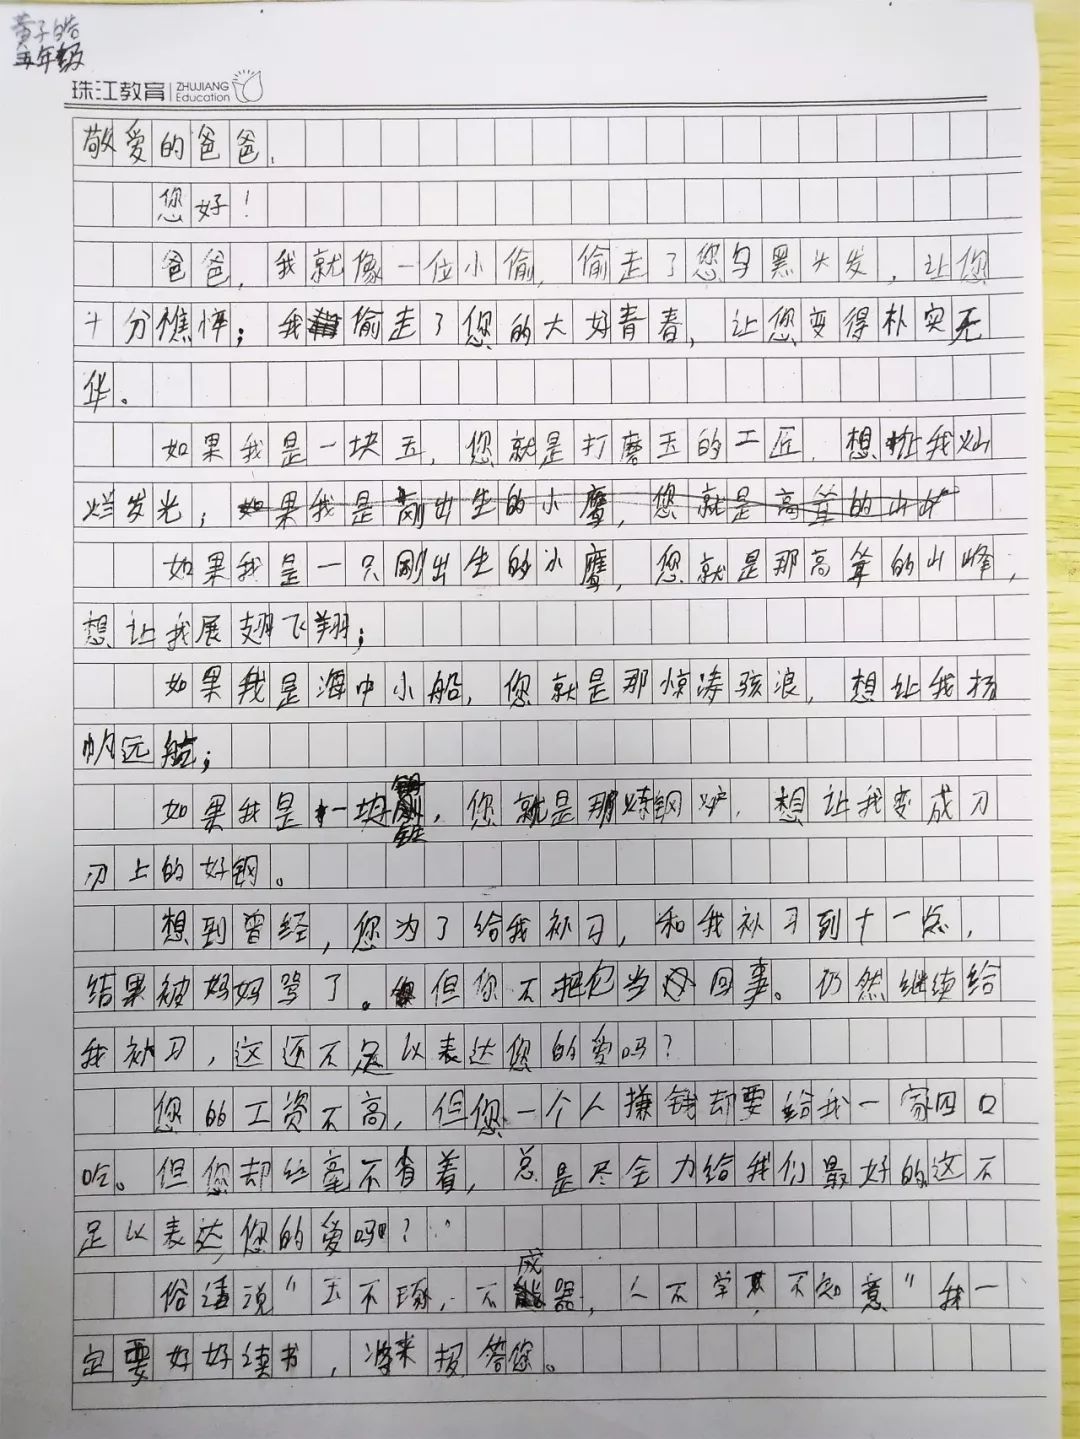 黄子皓
五年级
珠江教育 ZHUJIANG Education
敬爱的爸爸，
您好！
爸爸，我就像一位小偷，偷走了您乌黑头发，让您
十分憔悴；我偷走了您的大好青春，让您变得朴实无
华。
如果我是一块玉，您就是打磨玉的工匠，想让我灿
烂发光；如果我是刚出生的小鹰，您就是高耸的山
如果我是一只刚出生的小鹰，您就是那高耸的山峰，
想让我展翅飞翔；
如果我是海中小船，您就是那惊涛骇浪，想让我扬
帆远航；
如果我是一块，您就是那炼钢炉，想让我变成刀
刃上的好钢。
想到曾经，您为了给我补习，和我补习到十一点，
结果被妈妈骂了。但你不把它当回事。仍然继续给
我补习，这还不足以表达您的爱吗？
您的工资不高，但您一个人赚钱却要给我一家四口
吃。但您却丝毫不省着，总是尽全力给我们最好的这不
足以表达您的爱吗？
俗话说"玉不琢，不成器，人不学，不知意"我一
定要好好读书，将来报答您。